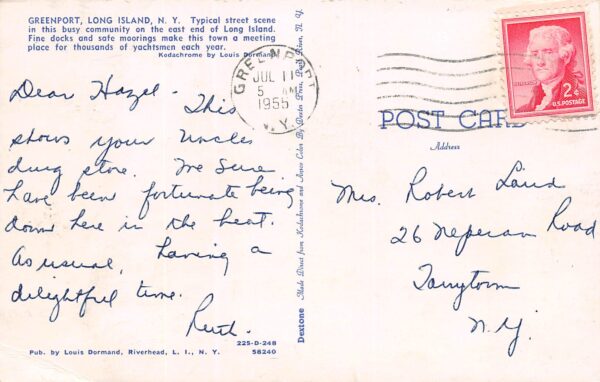 GREENPORT, LONG ISLAND, N. Y. Typical street scene
in this busy community on the east end of Long Island.
Fine docks and safe moorings make this town a meeting
place for thousands of yachtsmen each year.
Kodachrome by Louis Dormand
Dear Hazel - This
shows your Uncles
drug store. We sure
have been fortunate being
down here in the heat.
As usual, having a
delightful time.
Ruth.
225-D-248
58240
Pub. by Louis Dormand, Riverhead, L. I., N. Y.
Dextone Made Direct from Kodachrome and Ansco Color By Dexter Press, Pearl River, N. Y.
GREENPORT
JUL 11
5 AM
1955
N.Y.
2¢
U.S. POSTAGE
POST CARD
Address
Mrs. Robert Laird
26 Neperan Road
Tarrytown
N.Y.